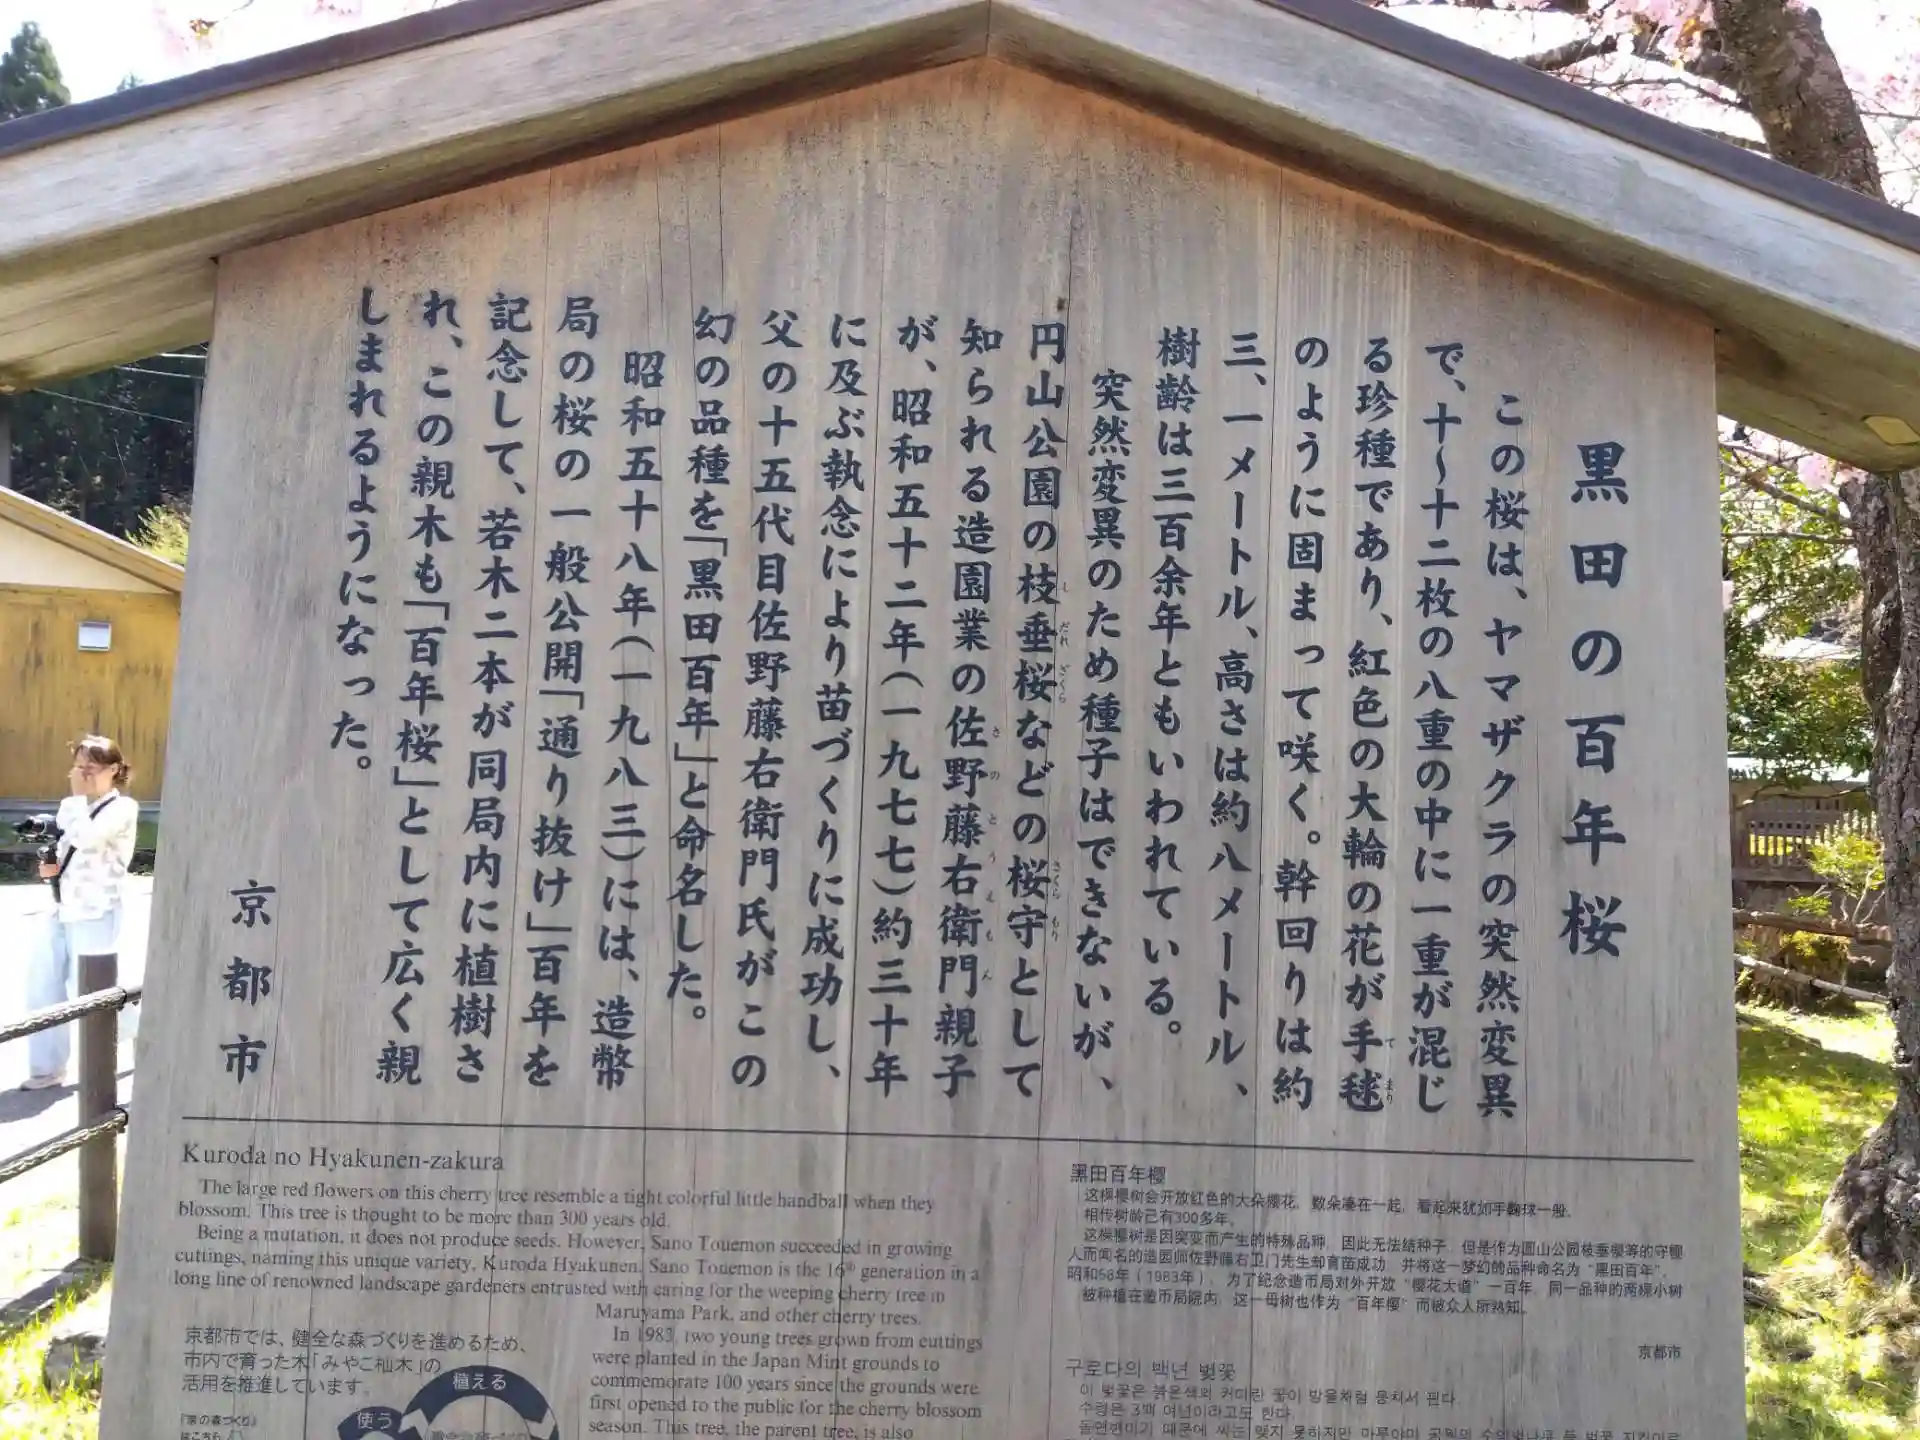 黒田の百年桜
この桜は、ヤマザクラの突然変異
で、十〜十二枚の八重の中に一重が混じ
る珍種であり、紅色の大輪の花が手毬
のように固まって咲く。幹回りは約
三、一メートル、高さは約八メートル、
樹齢は三百余年ともいわれている。
突然変異のため種子はできないが、
円山公園の枝垂桜などの桜守として
知られる造園業の佐野藤右衛門親子
が、昭和五十二年（一九七七）約三十年
に及ぶ執念により苗づくりに成功し、
父の十五代目佐野藤右衛門氏がこの
幻の品種を「黒田百年」と命名した。
昭和五十八年（一九八三）には、造幣
局の桜の一般公開「通り抜け」百年を
記念して、若木二本が同局内に植樹さ
れ、この親木も「百年桜」として広く親
しまれるようになった。
京都市
Kuroda no Hyakunen-zakura
The large red flowers on this cherry tree resemble a tight colorful little handball when they
blossom. This tree is thought to be more than 300 years old.
Being a mutation, it does not produce seeds. However, Sano Touemon succeeded in growing
cuttings, naming this unique variety, Kuroda Hyakunen. Sano Touemon is the 16th generation in a
long line of renowned landscape gardeners entrusted with caring for the weeping cherry tree in
Maruyama Park, and other cherry trees.
In 1983, two young trees grown from cuttings
were planted in the Japan Mint grounds to
commemorate 100 years since the grounds were
first opened to the public for the cherry blossom
season. This tree, the parent tree, is also
京都市では、健全な森づくりを進めるため、
市内で育った木「みやこ杣木」の
活用を推進しています。
植える
使う
黑田百年樱
这棵樱树会开放红色的大朵樱花，数朵凑在一起，看起来犹如手鞠球一般。
相传树龄已有300多年。
这棵樱树是因突变而产生的特殊品种，因此无法结种子，但是作为圆山公园枝垂樱等的守樱
人而闻名的造园师佐野藤右卫门先生却育苗成功，并将这一梦幻的品种命名为“黑田百年”。
昭和58年（1983年），为了纪念造币局对外开放“樱花大道”一百年，同一品种的两棵小树
被种植在造币局院内，这一母树也作为“百年樱”而被众人所熟知。
京都市
구로다의 백년 벚꽃
이 벚꽃은 붉은색의 커다란 꽃이 방울처럼 뭉쳐서 핀다.
수령은 3백 여년이라고도 한다.